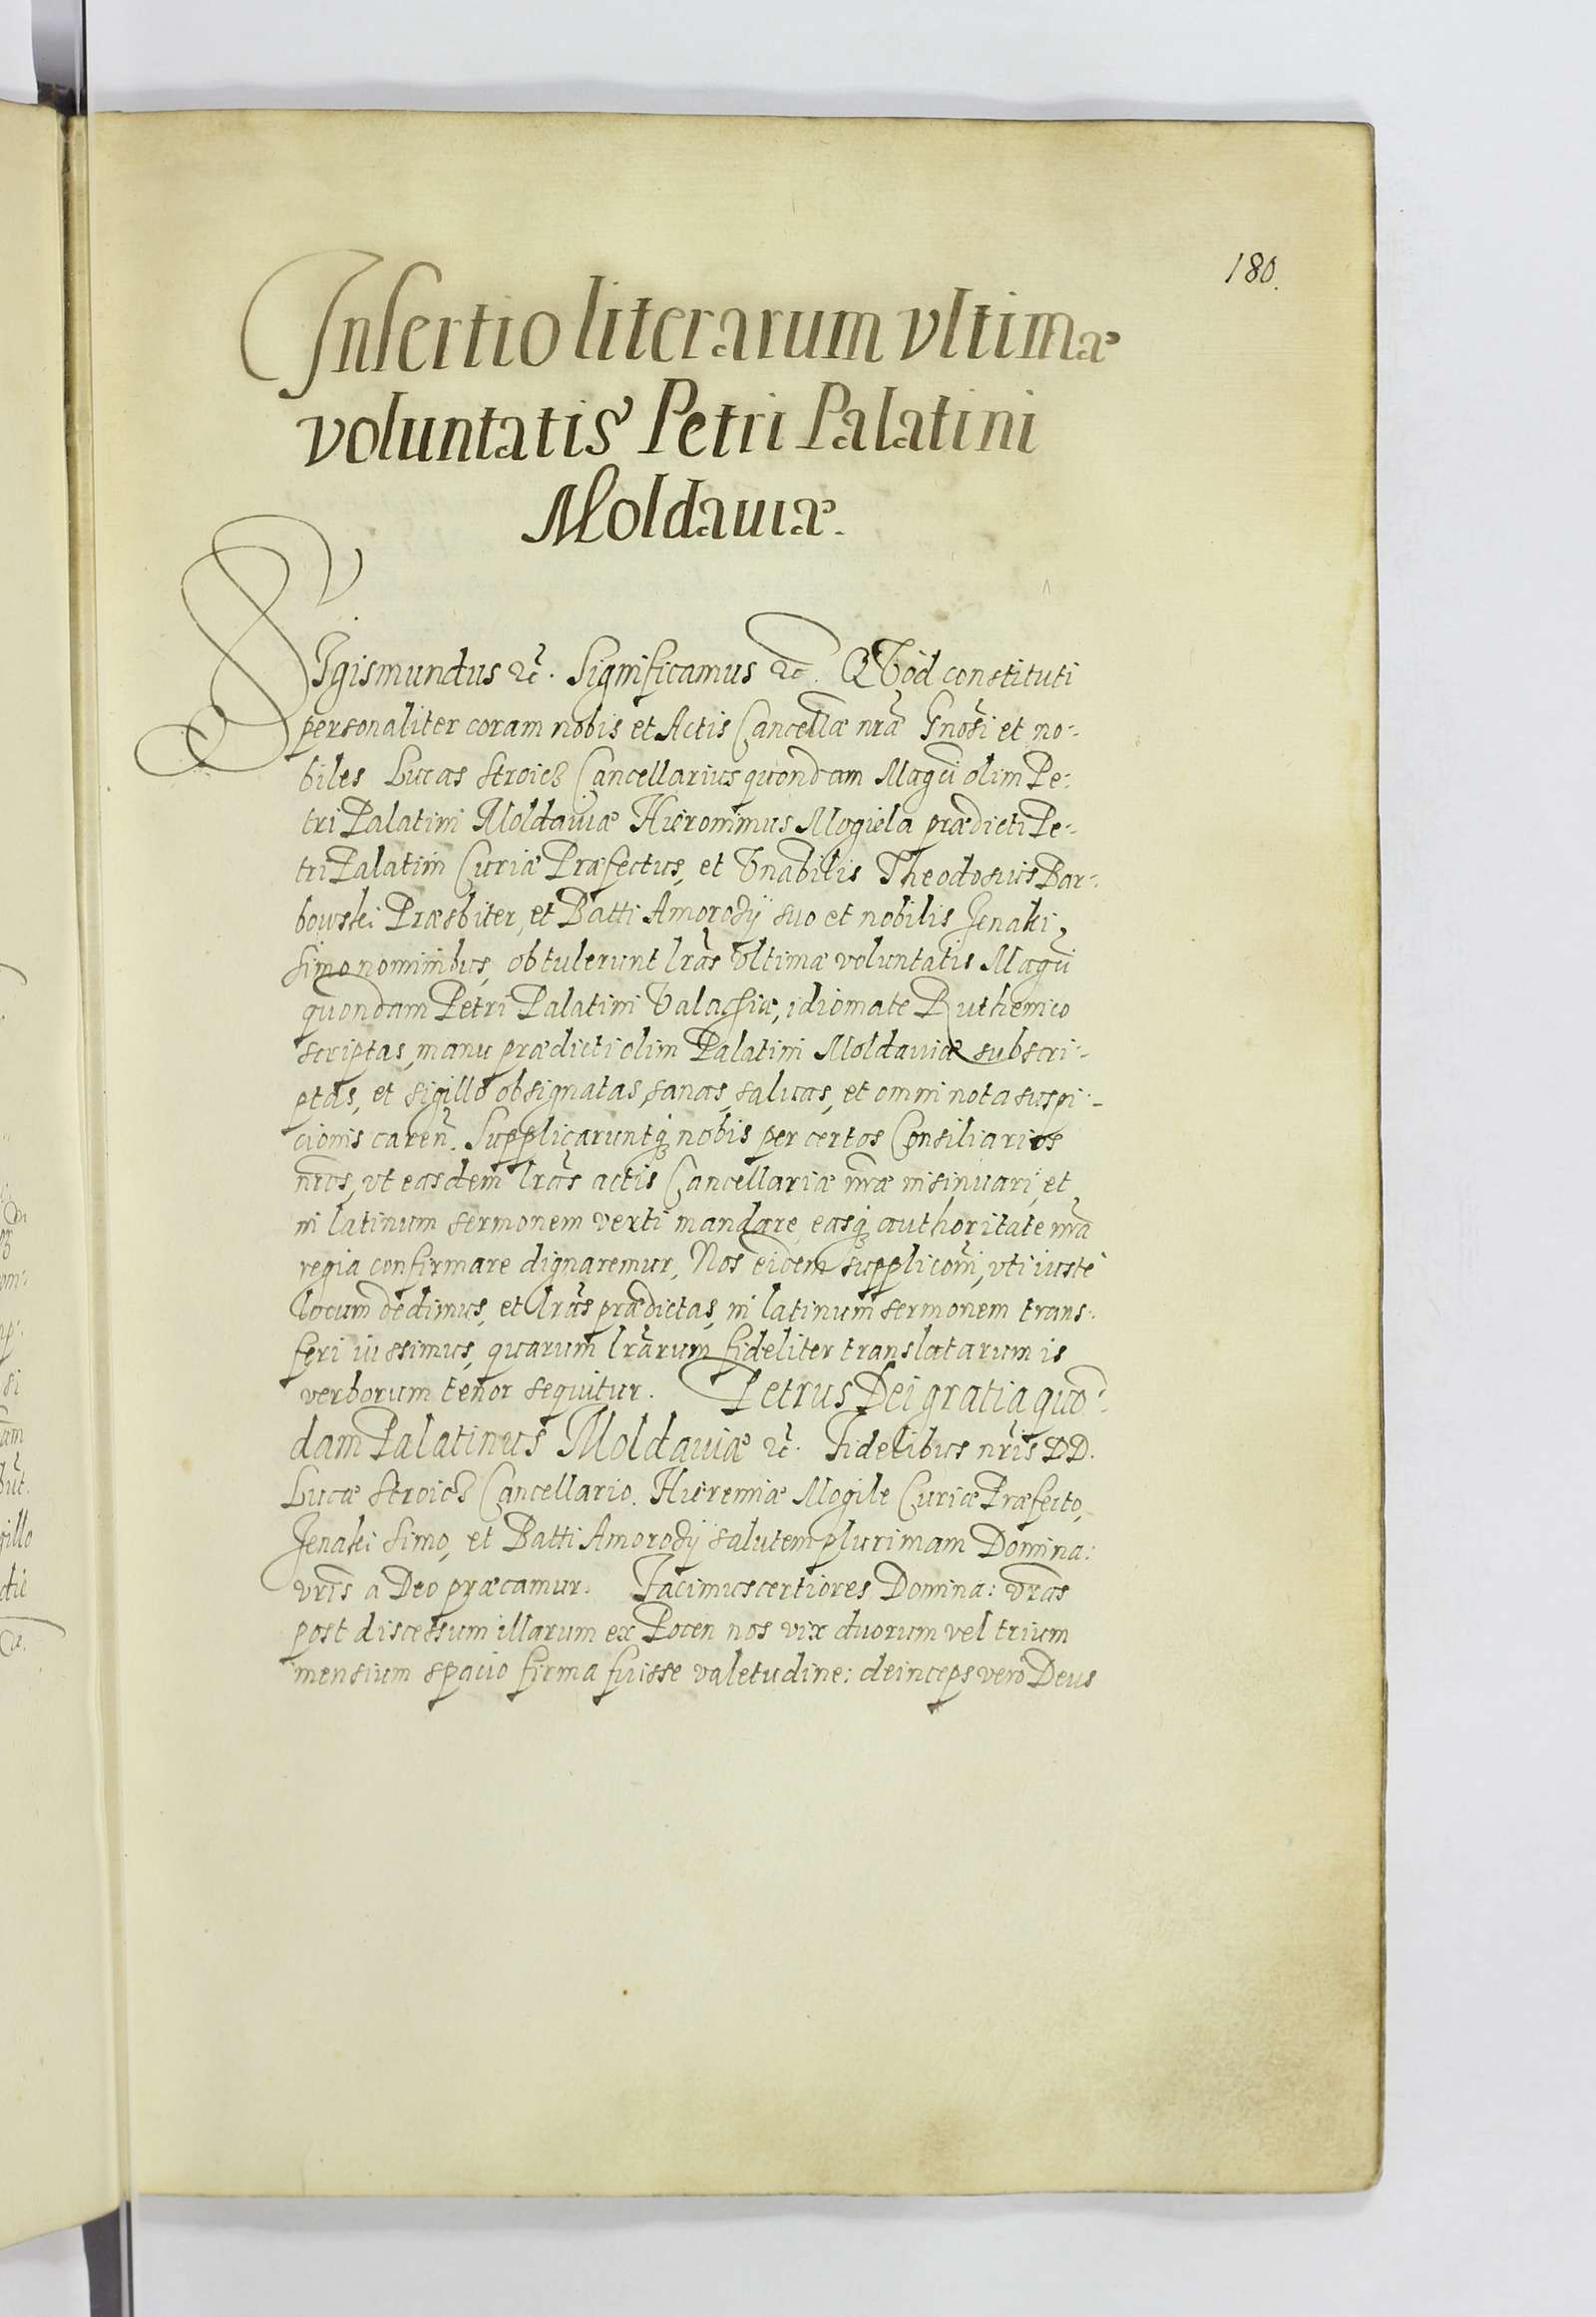 180.
Insertio literarum vltimæ
voluntatis Petri Palatini
Moldauiæ.
SIgismundus &c̃. Significamus &c. QVod constituti
personaliter coram nobis et Actis Cancellæ nr̃æ Gnõsi et no-
biles Lucas Stroicz Cancellarius quondam Magci olim Pe-
tri Palatini Moldauiæ Hieronimus Mogiela prædicti Pe-
tri Palatini Curiæ Præfectus, et Vnabilis Theodosius Bar-
bowski Præsbiter, et Batti Amorodÿ suo et nobilis Jenaki
Simo nominibus, obtulerunt lrãs Vltimæ voluntatis Magci
quondam Petri Palatini Valachiæ, idiomate Ruthenico
scriptas, manu prædicti olim Palatini Moldauiæ subscri-
ptas, et sigillo obsignatas, sanas, saluas, et omni nota suspi-
cionis careñ. Supplicaruntq; nobis per certos Consiliarios
nr̃os, vt easdem lrãs actis Cancellariæ nr̃æ insinuari, et
in latinum sermonem verti mandare, easq; authoritate nr̃a
regia confirmare dignaremur. Nos eidem supplicõni, vti iustè
locum dedimus, et lrãs prædictas, in latinum sermonem trans-
feri iussimus, quarum lrãrum fideliter translatarum is
verborum tenor sequitur. Petrus Dei gratia quo-
dam Palatinus Moldauiæ &c̃. Fidelibus nr̃is DD.
Lucæ Stroicz Cancellario. Hieremiæ Mogile Curiæ Præfecto,
Jenaki Simo, et Batti Amorodÿ salutem plurimam Domina:
vr̃is a Deo præcamur. Facimus certiores Domina: vr̃as
post discessum illarum ex Pocen nos vix duorum vel trium
mensium spacio firma fuisse valetudine: deinceps vero Deus